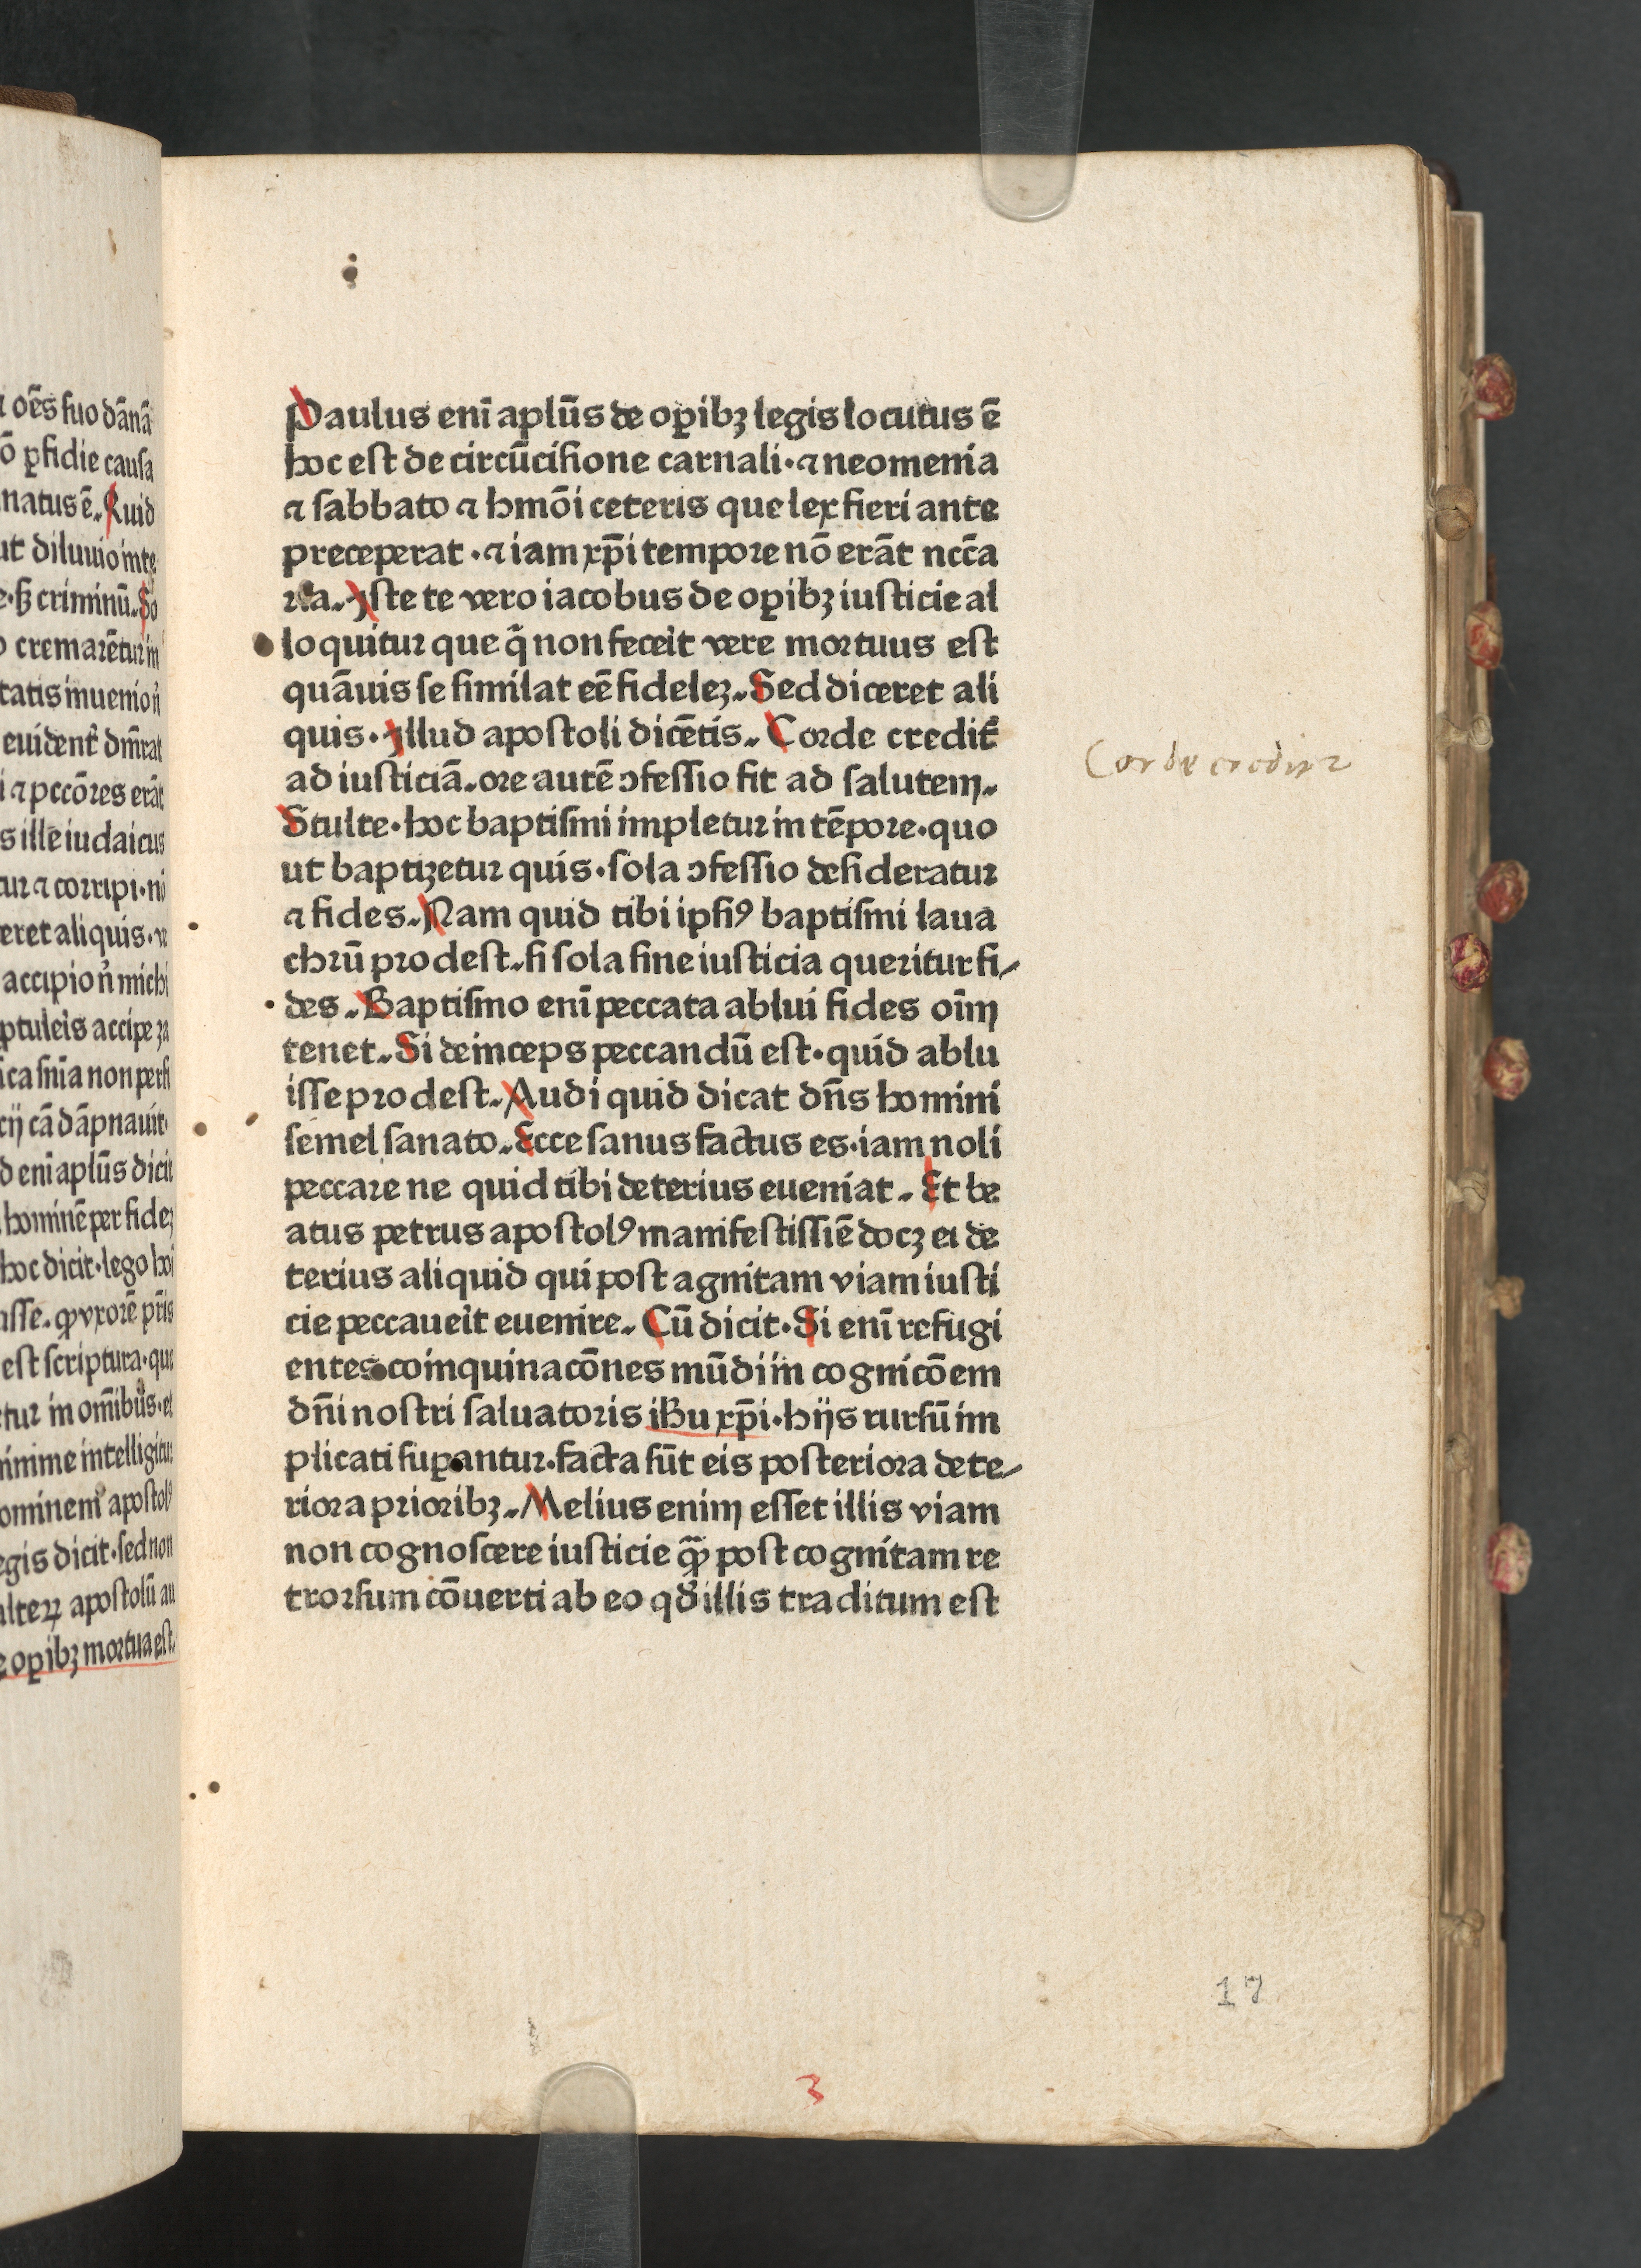 oēs suo dānā
ō ꝑfidie causa
natus ē. Quid
ut diluuio inte
criminū. So
cremarētur in
tatis inuenio
euident
pccōres erāt
s ille iudaicus
tur ⁊ corripi·ni
eret aliquis·
accipio michi
ptuleis accipe
ica snīa non
cij cā dāpnauit·
d eni apl̄us dicit
hominē per fideʒ
hoc dicit·lego hoi
asse. ꝙ vxorē pris
est scriptura·que
tur in om̄ibus·et
minime intelligitur
ominem apostolꝰ
egis dicit·sed non
alteꝝ apostolū au
e oꝑibʒ mortua est.
Paulus enī apl̄us de oꝑibʒ legis locutus ē
hoc est de circūcisione carnali·⁊ neomenia
⁊ sabbato ⁊ hmōi ceteris que lex fieri ante
preceperat·⁊ iam xp̄i tempore nō erāt nccā
ria. Iste te vero iacobus de oꝑibʒ iusticie al
loquitur que q̄ non feceit vere mortuus est
quāuis se similat eē fideleʒ. Sed diceret ali
quis·Illud apostoli dicētis. Corde credit̄
ad iusticiā. ore autē ↄfessio fit ad salutem.
Stulte·hoc baptismi impletur in tēpore·quo
ut baptizetur quis·sola ↄfessio desideratur
⁊ fides. Nam quid tibi ipsiꝰ baptismi laua
chrū prodest. si sola sine iusticia queritur fi⸗
des. Baptismo enī peccata ablui fides oīm
tenet. Si deinceps peccandū est·quid ablu
isse prodest. Audi quid dicat dn̄s homini
semel sanato. Ecce sanus factus es·iam noli
peccare ne quid tibi deterius eueniat. Et be
atus petrus apostolꝰ manifestissiē docʒ ei de
terius aliquid qui post agnitam viam iusti
cie peccaueit euenire. Cū dicit·Si enī refugi
entes coinquinacōnes mūdi in cognicōem
dn̄i nostri saluatoris ihu xp̄i·hijs rursū im
plicati suꝑantur·facta sūt eis posteriora dete⸗
riora prioribʒ. Melius enim esset illis viam
non cognoscere iusticie qȝ post cognitam re
trorsum cōuerti ab eo qđ illis traditum est
Corde creditur
17
3